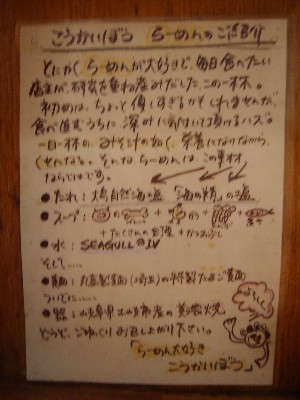 こうかいぼう らーめんのご紹介
とにかくらーめんが大好きで、毎日食べたい
店主が、研究を重ね産みだした、この一杯。
初めは、ちょっと優しすぎるかもしれませんが、
食べ進むうちに、深みに気付いて頂けるハズ。
一日一杯のみそ汁の如く、栄養になりながら、
くせになる。そんならーめんは、この素材
ならではです。
●たれ:焼自然海塩「海の精」の塩
●スープ: の + の + +
+たくさんの野菜+かつおぶし
●水:SEAGULL IV
そして…
●麺: 製麺(埼玉)の特製たまご麺
ついでに…
●器:山形県 市産の
どうぞ、ごゆっくりお召し上がり下さい。
「らーめん大好き
こうかいぼう」